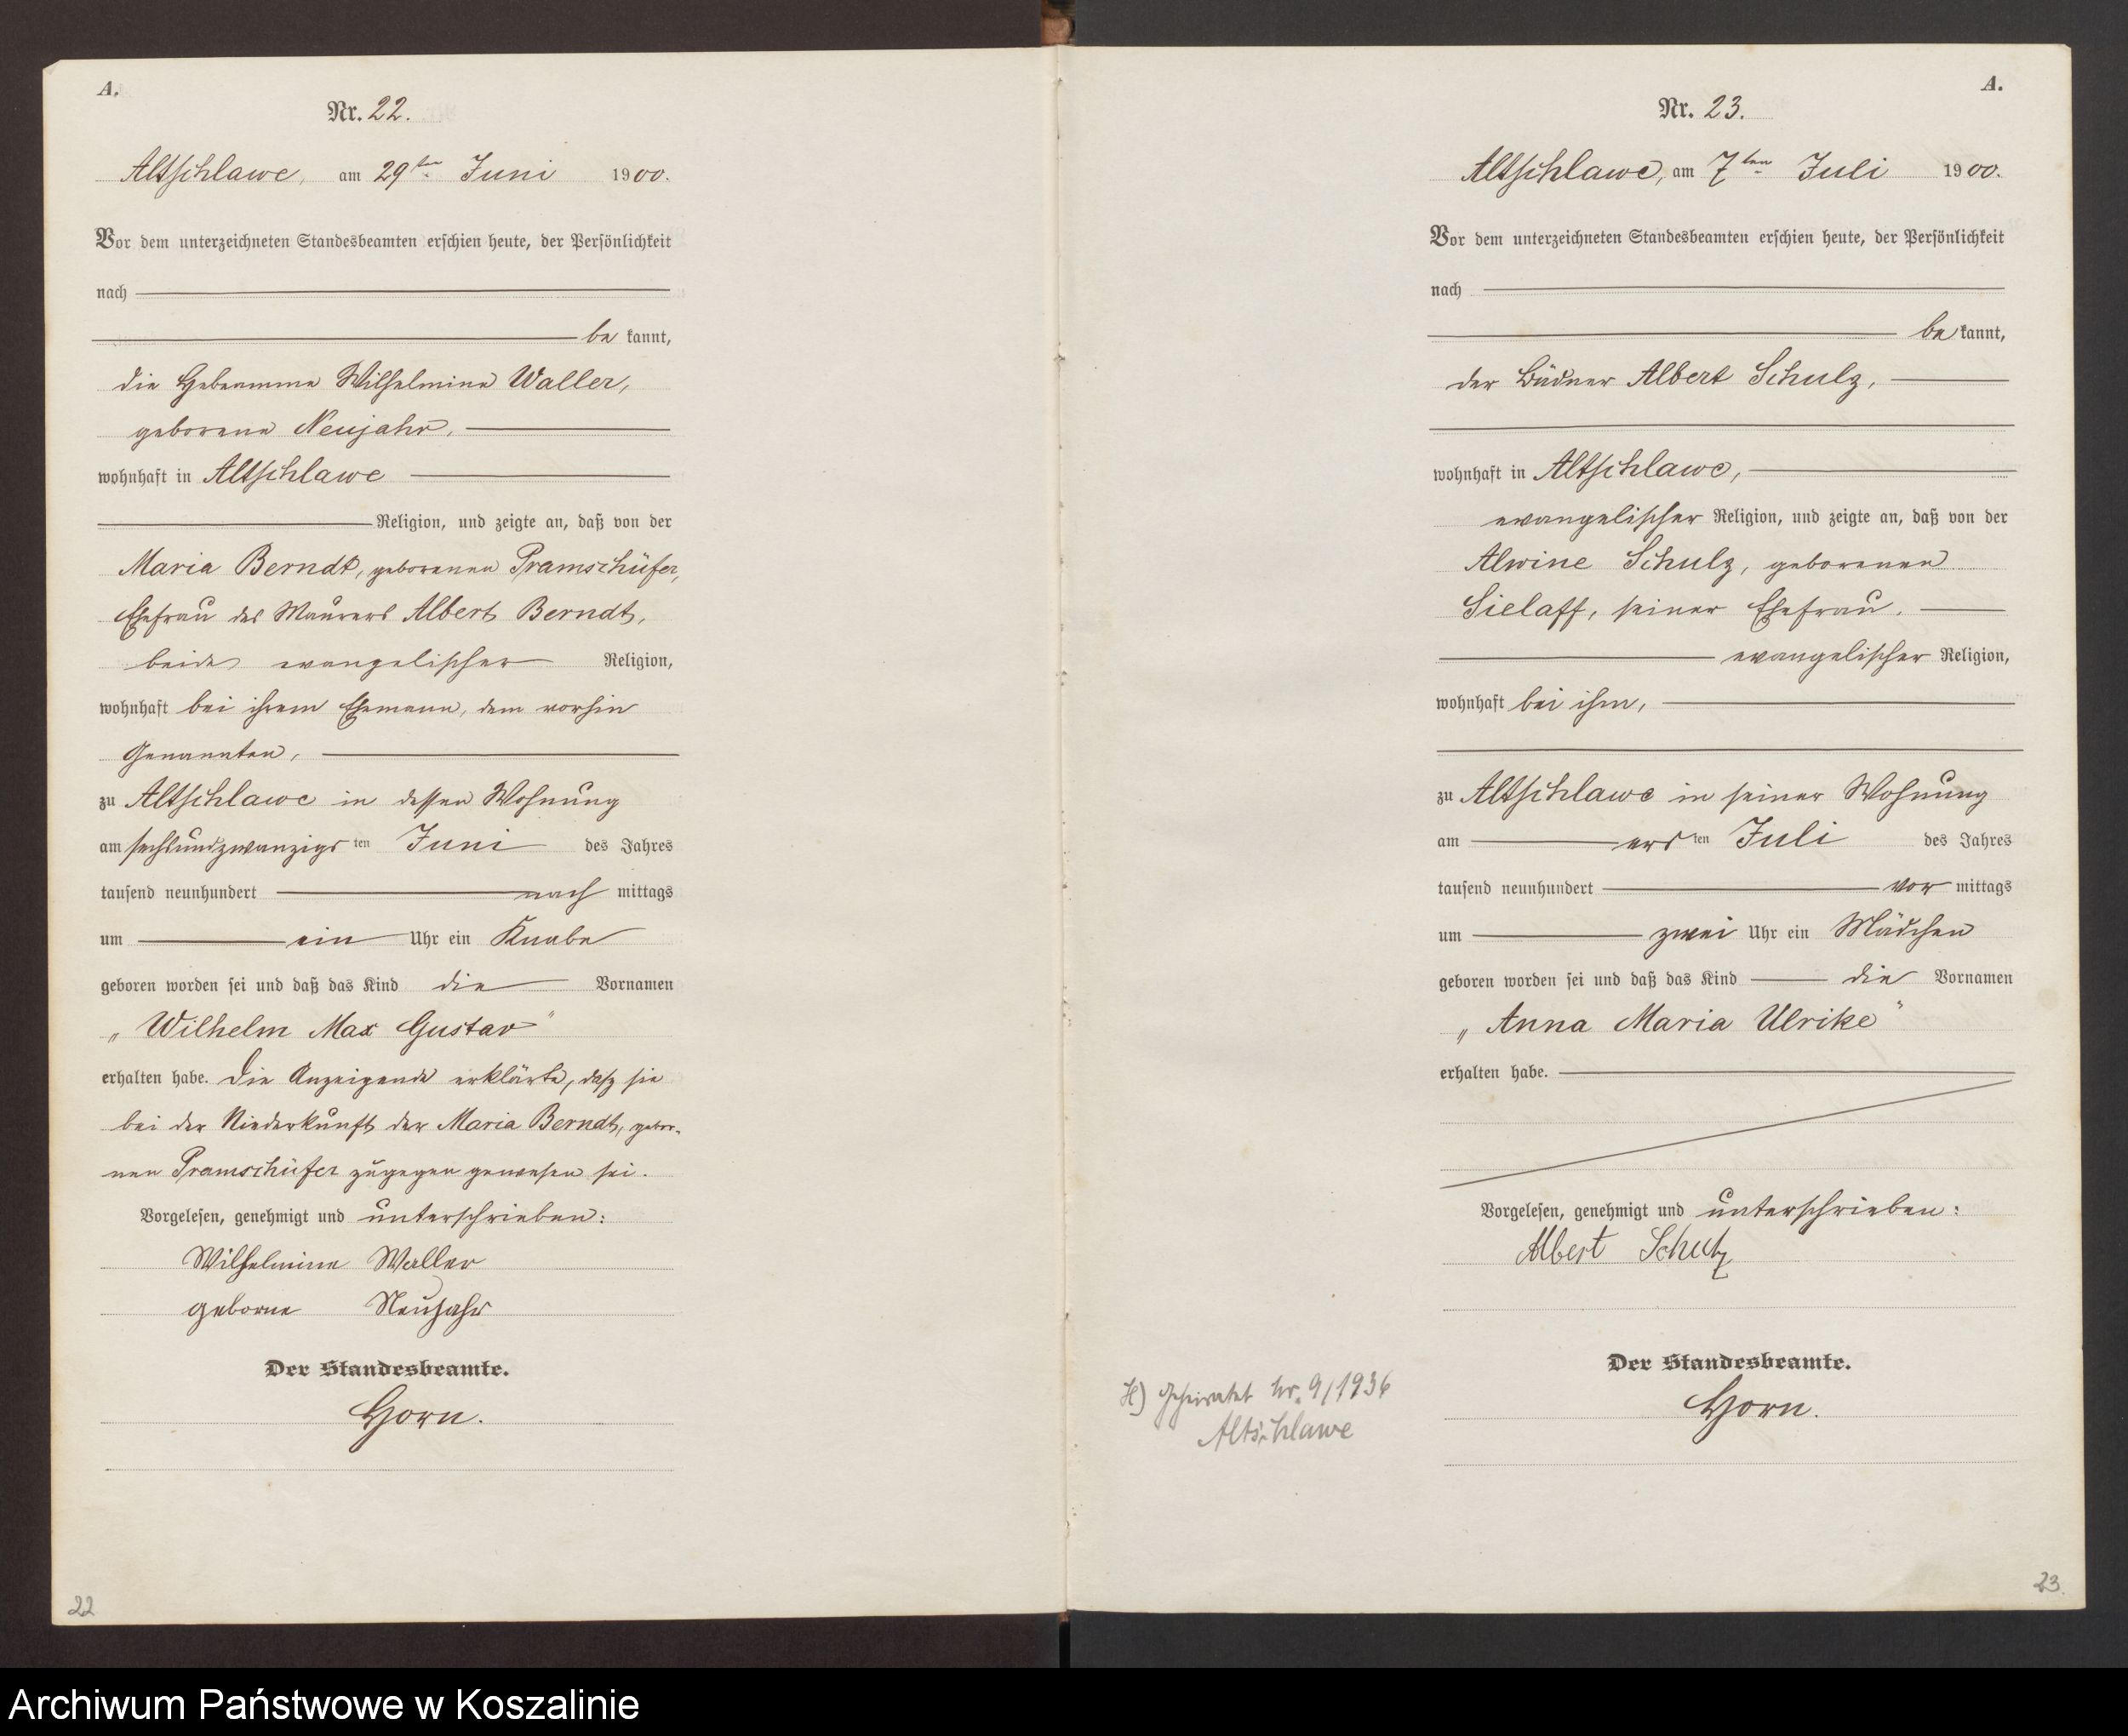 A.
Nr. 22.
Altschlawe, am 29ten Juni 1900.
Vor dem unterzeichneten Standesbeamten erschien heute, der Persönlichkeit
nach
be kannt,
die Hebeamme Wilhelmine Waller,
geborene Neujahr,
wohnhaft in Altschlawe
Religion, und zeigte an, daß von der
Maria Berndt, geborenen Pramschüfer,
Ehefrau des Maurers Albert Berndt,
beide evangelischer Religion,
wohnhaft bei ihrem Ehemann, dem vorhin
Genannten,
zu Altschlawe in dessen Wohnung
am sechsundzwanzigsten Juni des Jahres
tausend neunhundert nach mittags
um ein Uhr ein Knabe
geboren worden sei und daß das Kind die Vornamen
„Wilhelm Max Gustav"
erhalten habe. Die Anzeigende erklärte, daß sie
bei der Niederkunft der Maria Berndt, gebor-
nen Pramschüfer zugegen gewesen sei.
Vorgelesen, genehmigt und unterschrieben:
Wilhelmine Waller
geborne Neujahr
Der Standesbeamte.
Horn.
22
A.
Nr. 23.
Altschlawe, am 7ten Juli 1900.
Vor dem unterzeichneten Standesbeamten erschien heute, der Persönlichkeit
nach
be kannt,
der Büdner Albert Schulz,
wohnhaft in Altschlawe,
evangelischer Religion, und zeigte an, daß von der
Alwine Schulz, geborenen
Sielaff, seiner Ehefrau,
evangelischer Religion,
wohnhaft bei ihm,
zu Altschlawe in seiner Wohnung
am ersten Juli des Jahres
tausend neunhundert vor mittags
um zwei Uhr ein Mädchen
geboren worden sei und daß das Kind die Vornamen
„Anna Maria Ulrike"
erhalten habe.
Vorgelesen, genehmigt und unterschrieben:
Albert Schulz
Der Standesbeamte.
Horn.
H) Geheiratet Nr. 9/1936
Altschlawe
23.
Archiwum Państwowe w Koszalinie